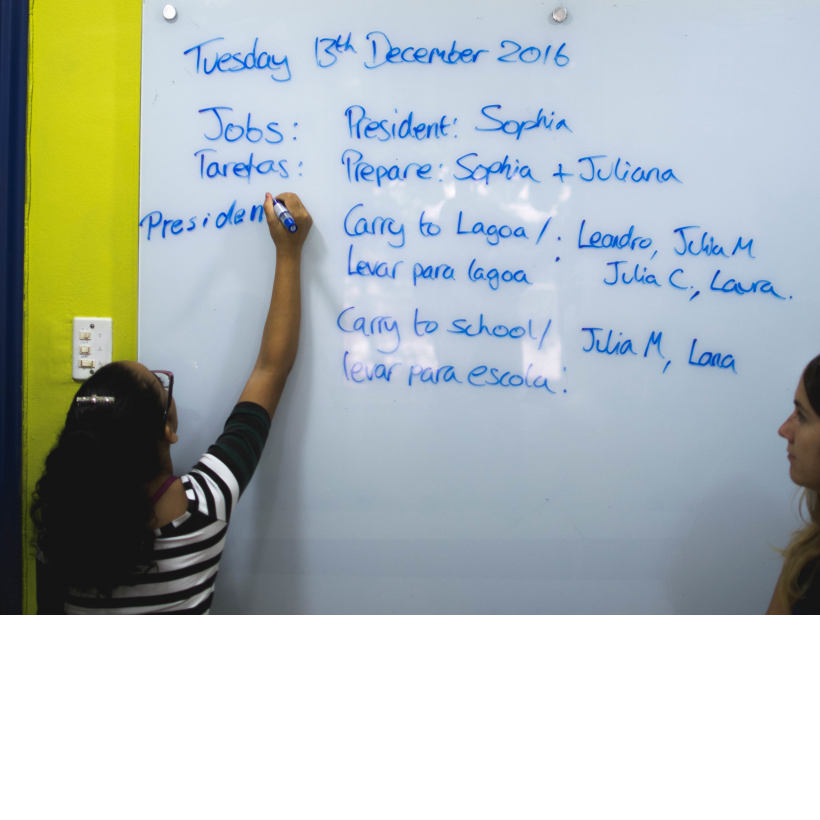 Tuesday 13th December 2016
Jobs: President: Sophia
Tarefas: Prepare: Sophia + Juliana
Presiden
Carry to Lagoa / : Leandro, Julia M
Levar para lagoa Julia C., Laura.
Carry to school/ Julia M, Lana
levar para escola: